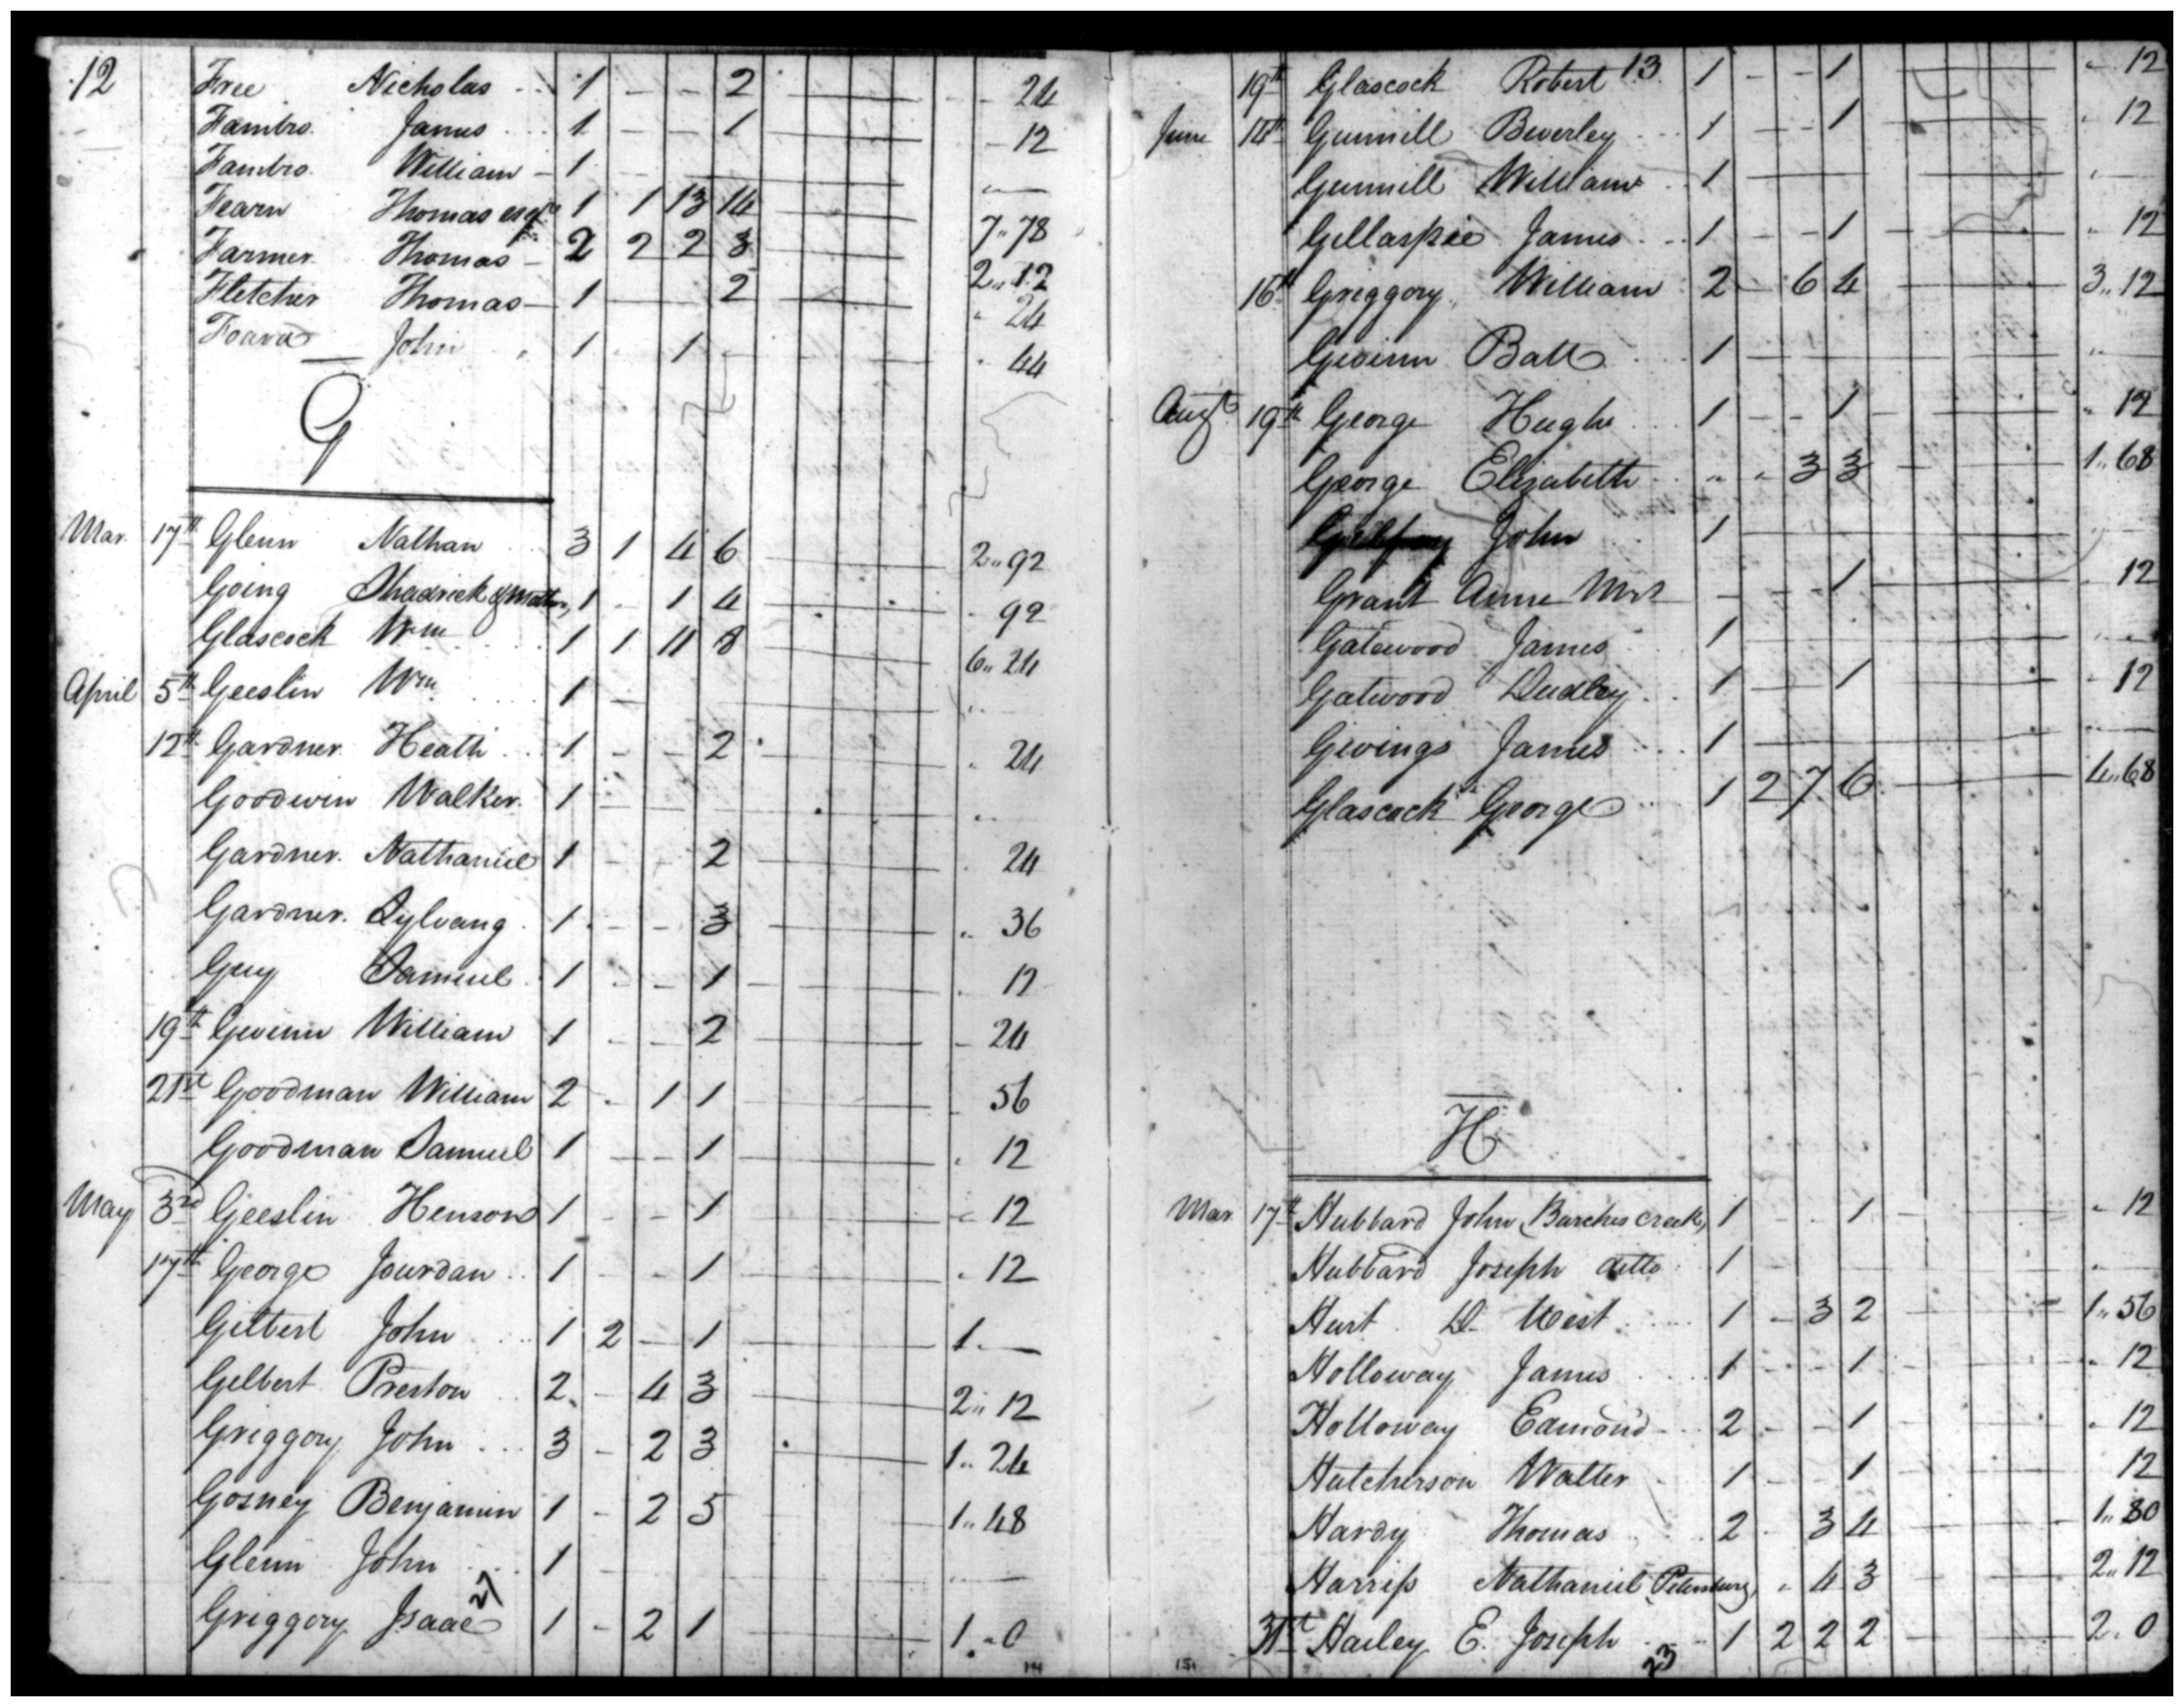 12
Free Nicholas - 1 - - 2 - 24
Fambro. James 1 - - 1 - 12
Fambro. William - 1 -
Fearn Thomas esqr 1 1 13 14 7.. 78
Farmer. Thomas - 2 2 2 3 2.. 12
Fletcher Thomas - 1 - 2 24
Foard John 1 - 1 - 44
G
Mar. 17th Glenn Nathan 3 1 4 6 2.. 92
Going Shadrick 1 - 1 4 92
Glascock Wm 1 1 11 8 6.. 24
April 5th Geeslin Wm 1 -
12th Gardner. Heath 1 - - 2 24
Goodwin Walker. 1 -
Gardner. Nathaniel 1 - - 2 24
Gardner. Sylvang 1 - - 3 36
Guy Samuel 1 - - 1 12
19th Gwinn William 1 - - 2 24
21st Goodman William 2 - 1 1 56
Goodman Samuel 1 - - 1 12
May 3rd Geeslin Henson 1 - - 1 12
17th George Jourdan 1 - - 1 12
Gilbert John 1 2 - 1 1. -
Gilbert Preston 2 - 4 3 2.. 12
Griggory John 3 - 2 3 1.. 24
Gosney Benjamin 1 - 2 5 1.. 48
Glenn John 1
Griggory Isaac 1 - 2 1 1.. 0
27
14
13
19th Glascock Robert 1 - - 1 12
June 14th Gunnill Beverley 1 - - 1 12
Gunnill William 1 -
Gillaspie James 1 - - 1 12
16th Griggory William 2 - 6 4 3.. 12
Gwinn Ball 1 -
Augt 19th George Hugh 1 - - 1 12
George Elizabeth .. .. 3 3 1.. 68
John 1 -
Grant Anne Mrs - - - 1 12
Gatewood James 1 -
Gatwood Dudley 1 - 1 12
Gwings James 1 -
Glascock George 1 2 7 6 4.. 68
H
Mar. 17th Hubbard John (Burches creek) 1 - - 1 12
Hubbard Joseph ditto 1 -
Hurt D. West 1 - 3 2 1.. 56
Holloway James 1 - - 1 12
Holloway Edmond 2 - - 1 12
Hutcherson Walter 1 - - 1 12
Hardy Thomas 2 - 3 4 1.. 80
Harriss Nathaniel (Petersburg) .. 4 3 2.. 12
31st Hailey E. Joseph 1 2 2 2 2.. 0
23
15